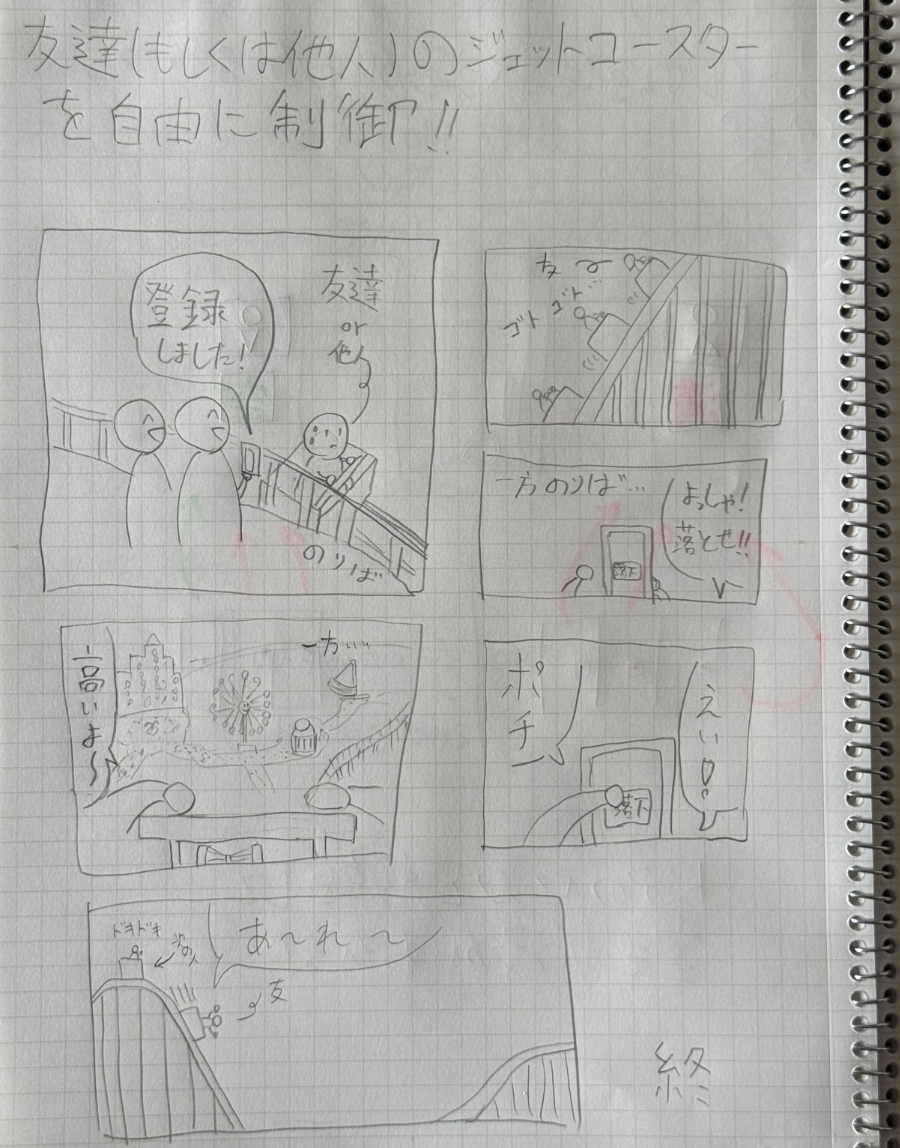 友達(もしくは他人)のジェットコースター
を自由に制御!!
登録
しました!
友達
or
他人
のりば
友
ゴト ゴト…
一方のりば…
よっしゃ!
落とせ!!
落下
高いよ〜
一方…
ポチッ
えい!!
落下
ドキドキ
次の人
あ〜れ〜
友
終